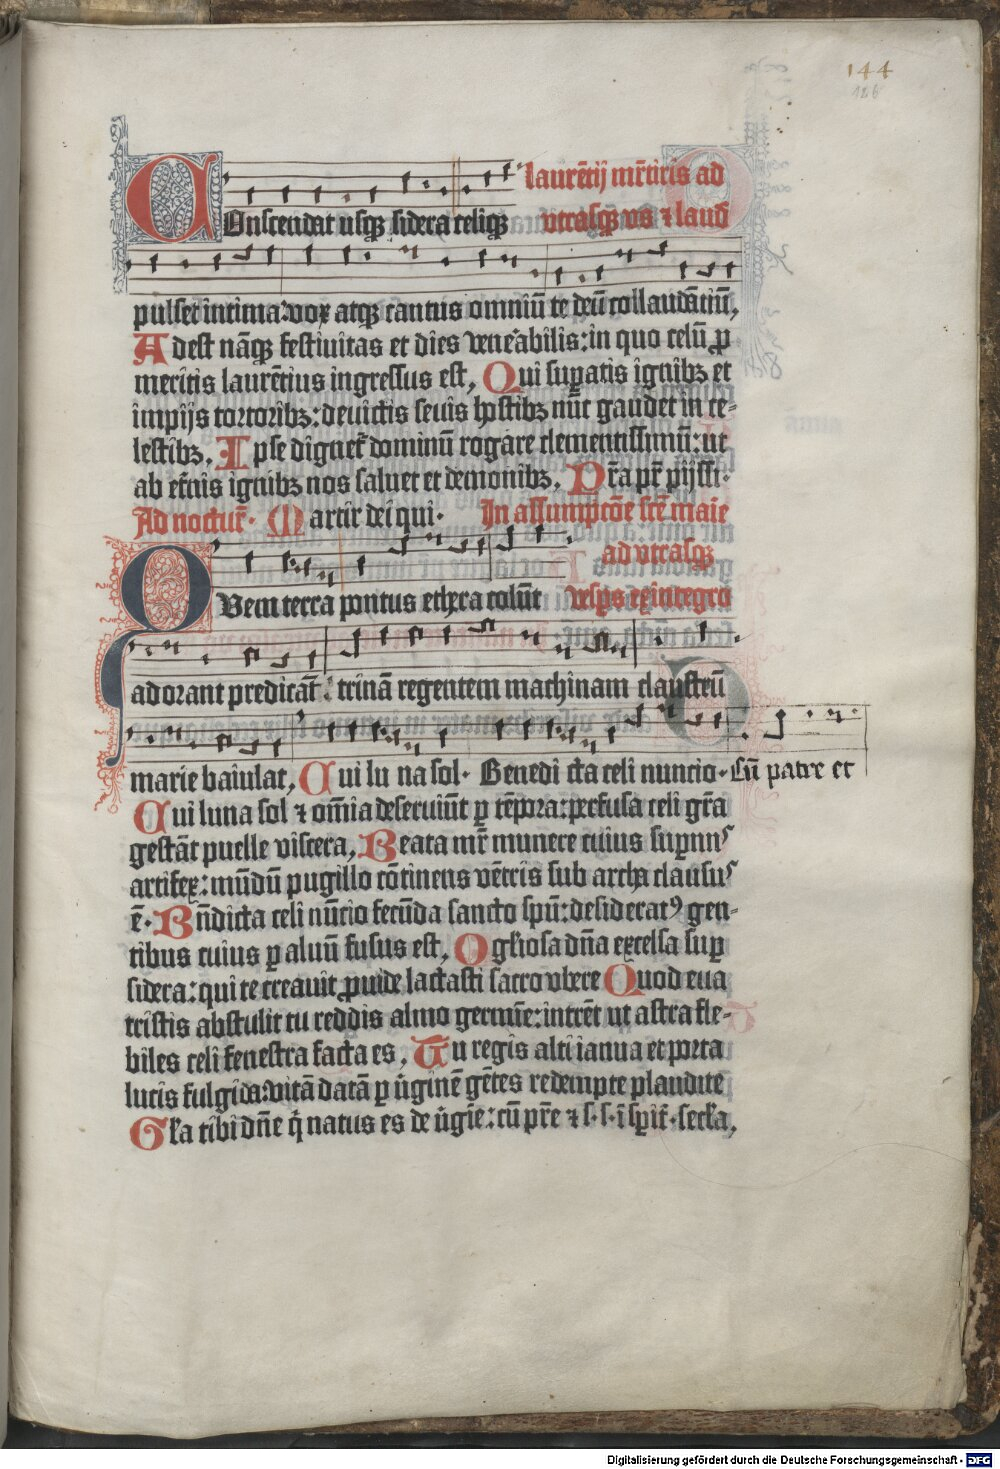 144
126
laurētij mr̄tiris ad
COnscendat usqꝫ sidera celiqꝫ
vtrasqꝫ vs ⁊ laud
pulset intima: vox atqꝫ cantus omniū te deū collaudātiū,
Adest nāqꝫ festiuitas et dies veneᷓabilis: in quo celū ꝓ
meritis laurētius ingressus est, Qui suꝑatis ignibꝫ et
impijs tortoribꝫ: deuictis seuis hostibꝫ nūc gaudet in ce-
lestibꝫ. Ipse dignet᷑ dominū rogare clementissimū: ut
ab et̄nis ignibꝫ nos saluet et demonibꝫ. Pr̄ta pr̄ pijssi:
Ad noctur̄. Martir dei qui. In assumpcōe scē marie
ad vtrasqꝫ
QVem terra pontus ethera colūt vesꝑs exn̄integro
adorant predicāt: trinā regentem machinam claustrū
marie baiulat, Cui lu na sol. Benedi cta celi nuncio. Cū patre et
Cui luna sol ⁊ om̄ia deseruiūt ꝑ tēpora: perfusa celi gr̄a
gestāt puelle viscera, Beata mr̄ munere cuius suꝑnnꝰ
artifex: mūdū pugillo cōtinens vētris sub archa clausuꝰ
ē. Bn̄dicta celi nūcio fecūda sancto spū: desideratꝰ gen-
tibus cuius ꝑ aluū fusus est, O gl̄iosa dn̄a excelsa suꝑ
sidera: qui te creauit ꝓuide lactasti sacro vbere Quod eua
tristis abstulit tu reddis almo germīe: intrēt ut astra fle-
biles celi fenestra facta es, Tu regis alti ianua et porta
lucis fulgida: vitā datā ꝑ v̓ginē gētes redempte plaudite
Gl̄a tibi dn̄e q̄ natus es de v̓gīe: cū pr̄e ⁊ s. s. ī sꝑit̄. secl̄a,
Digitalisierung gefördert durch die Deutsche Forschungsgemeinschaft - DFG